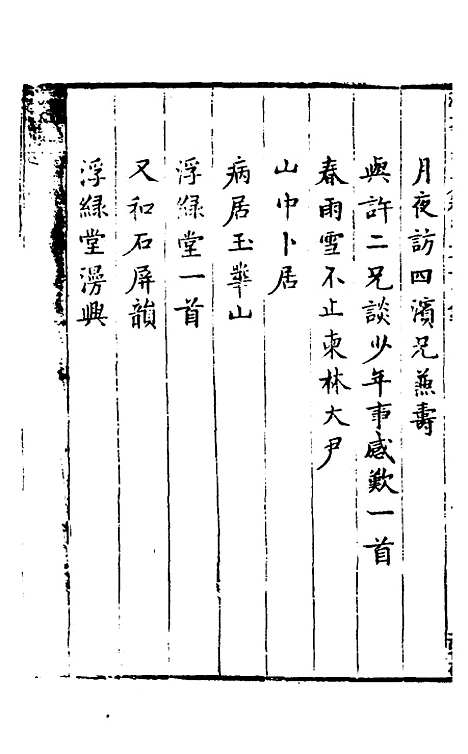 月夜訪四濱兄燕壽
與許二兄談少年事感歎一首
春雨雪不止柬林大尹
山中卜居
病居玉華山
浮綠堂一首
又和石屏韻
浮綠堂漫興